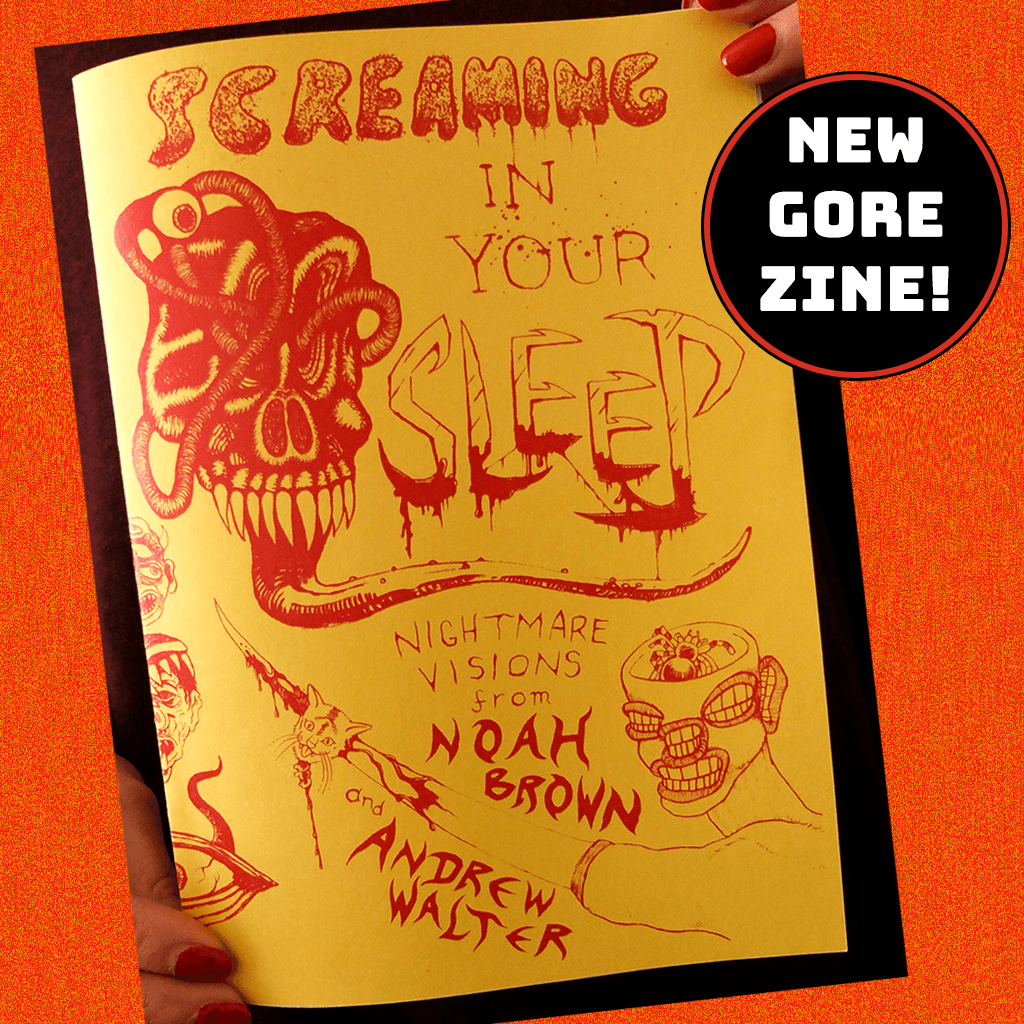 SCREAMING
IN
YOUR
SLEEP
NIGHTMARE
VISIONS
from
NOAH
BROWN
and
ANDREW
WALTER
NEW
GORE
ZINE!